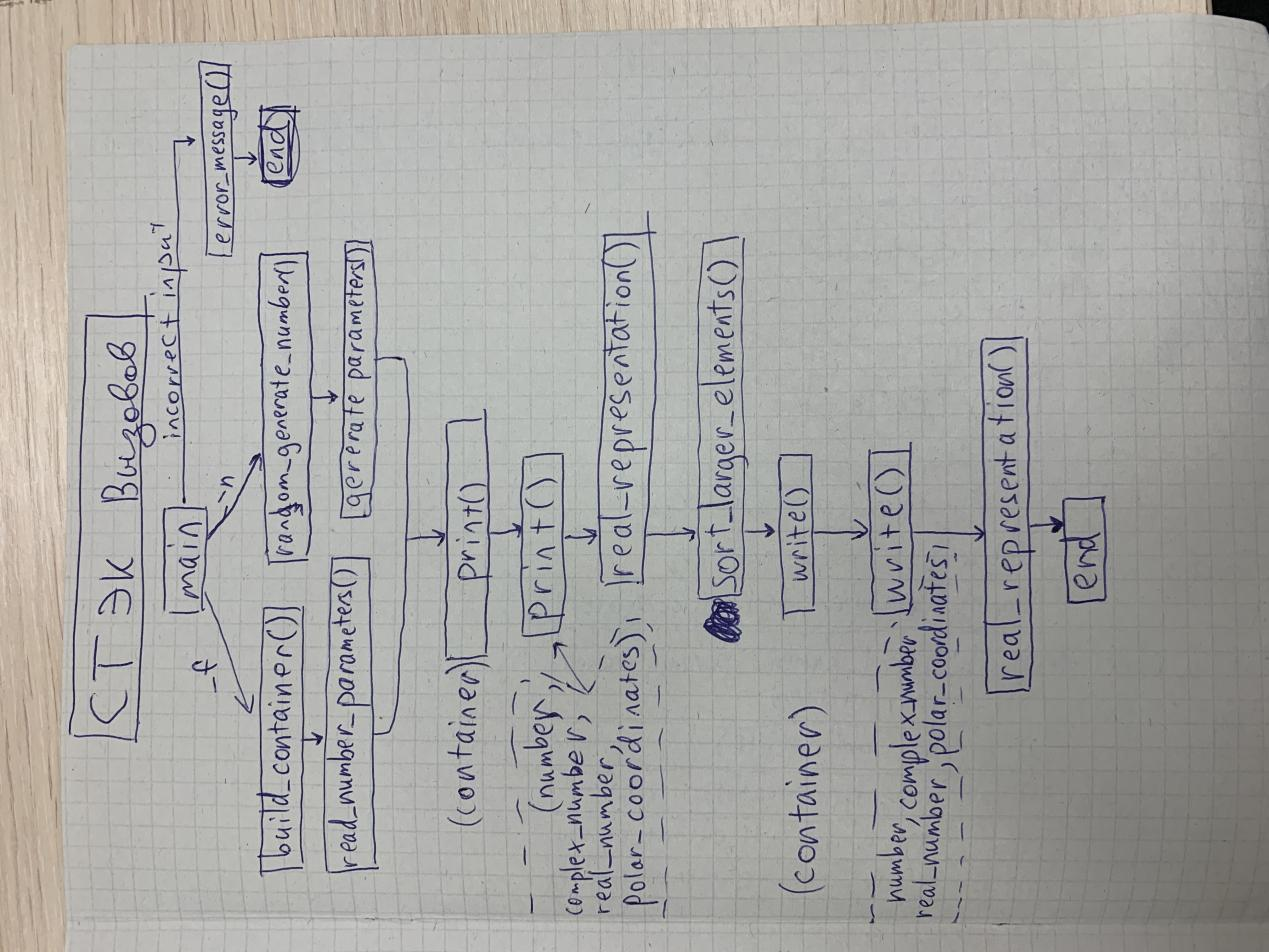 СТЭК Вызовов
incorrect input
main
error_message()
end
-f
-n
build_container()
random_generate_number()
read_number_parameters()
gererate parameters()
(container)
print()
(number,
print()
complex_number,
real_number,
polar_coordinates);
real_representation()
Sort_larger_elements()
(container)
write()
number, complex_number
real_number, polar_coordinates;
write()
real_representation()
end